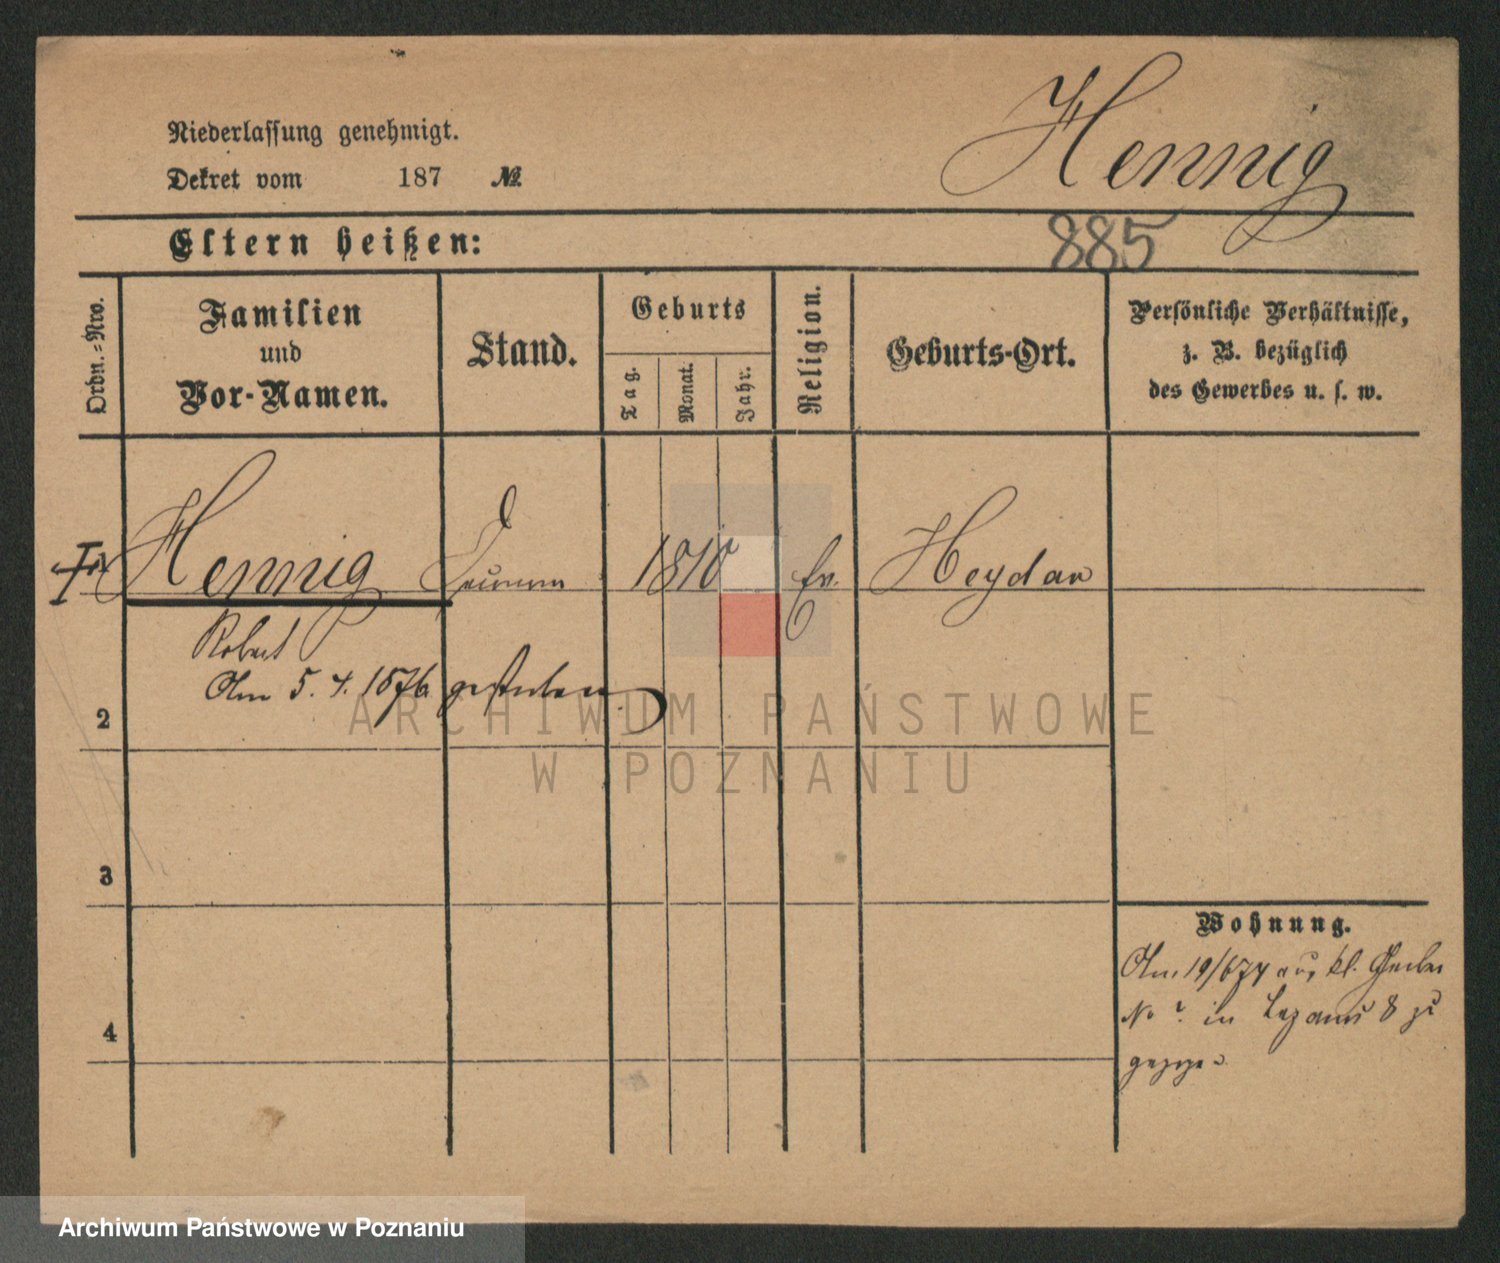 Hennig
Niederlassung genehmigt.
Dekret vom 187 №
885
Eltern heißen:
Ordn.=Nro.
Familien
und
Vor-Namen.
Stand.
Geburts
Tag.
Monat.
Jahr.
Religion.
Geburts-Ort.
Persönliche Verhältnisse,
z. B. bezüglich
des Gewerbes u. s. w.
Hennig 1810 Ev. Heydau
Robert
Am 5. 4. 1876 gestorben
2
3
4
Wohnung.
Am 19/6 74 aus kl. Gerber
No in 8 zu
gezogen
ARCHIWUM PAŃSTWOWE
W POZNANIU
Archiwum Państwowe w Poznaniu